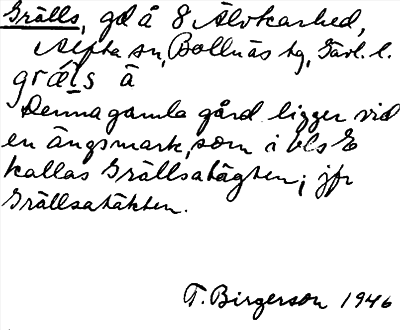 Grälls, gd å 8 Älvkarhed,
Alfta sn, Bollnäs tg, Gävl. l.
gräls ä
Denna gamla gård ligger vid
en ängsmark, som i bls E
kallas Grällsatägten; jfr
Grällsatäkten.
T. Birgerson 1946